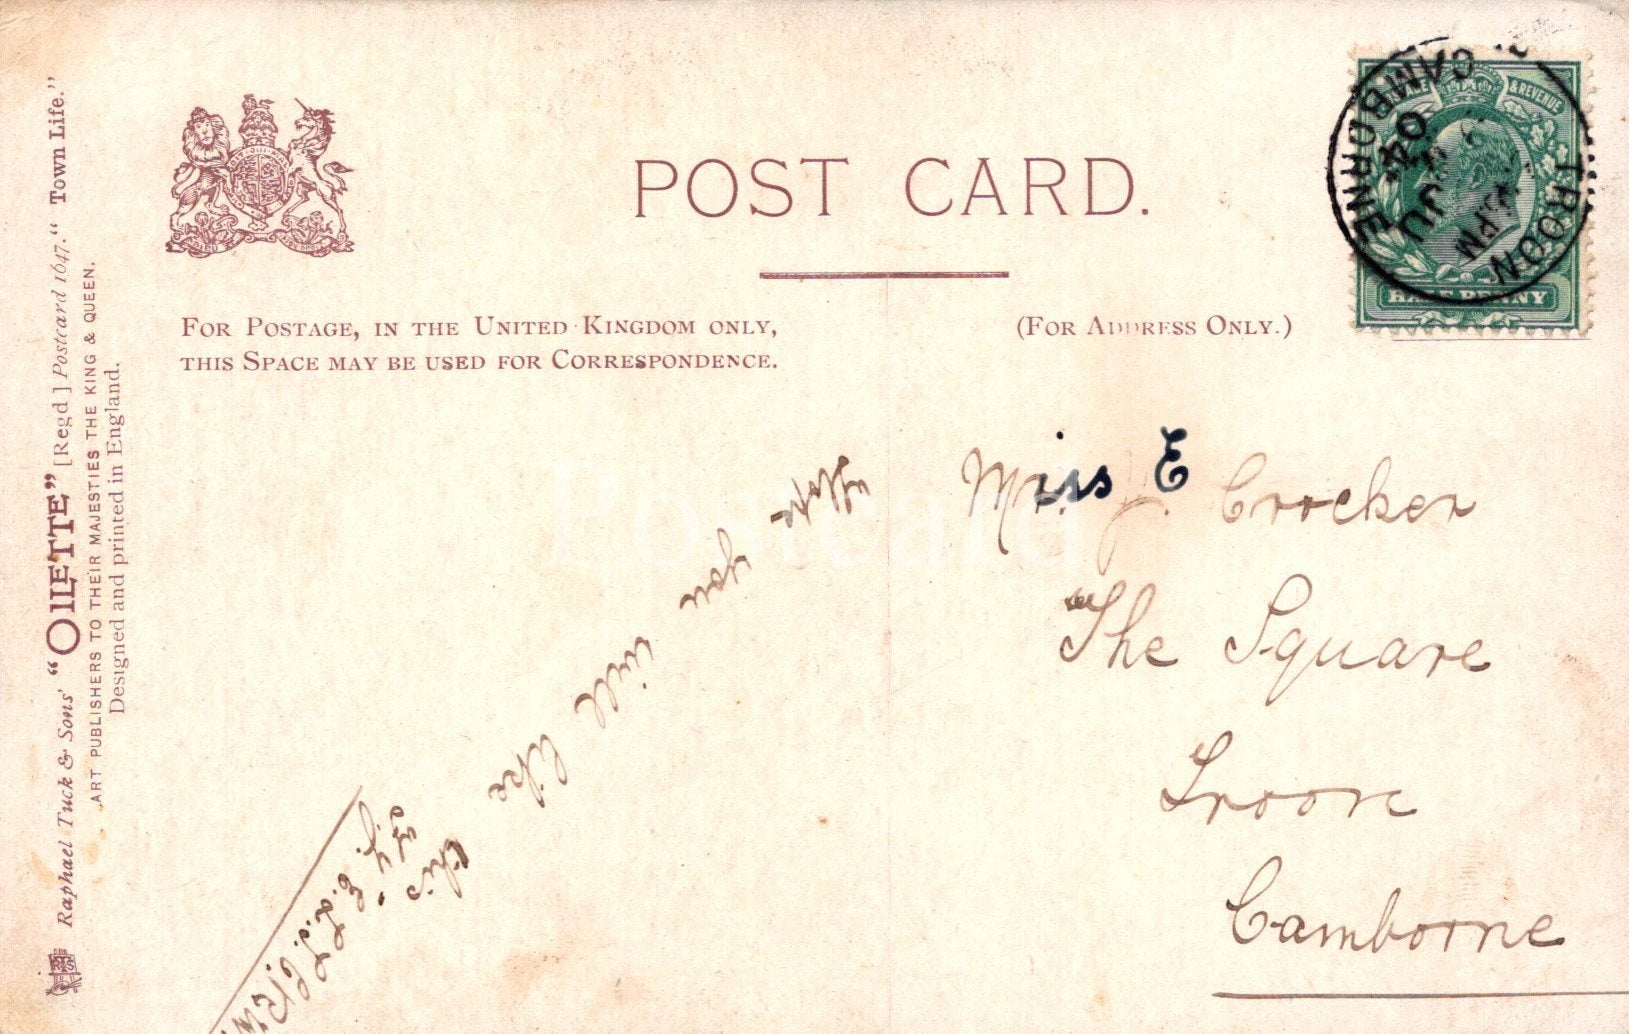 POST CARD.
FOR POSTAGE, IN THE UNITED KINGDOM ONLY,
THIS SPACE MAY BE USED FOR CORRESPONDENCE.
(FOR ADDRESS ONLY.)
& REVENUE
HALF PENNY
TROON
CAMBORNE
PM
JU
04
Miss E Crocker
The Square
Troon
Camborne
Hope you will like
this
Raphael Tuck & Sons' "OILETTE" [Regd] Postcard 1647. "Town Life."
ART PUBLISHERS TO THEIR MAJESTIES THE KING & QUEEN.
Designed and printed in England.